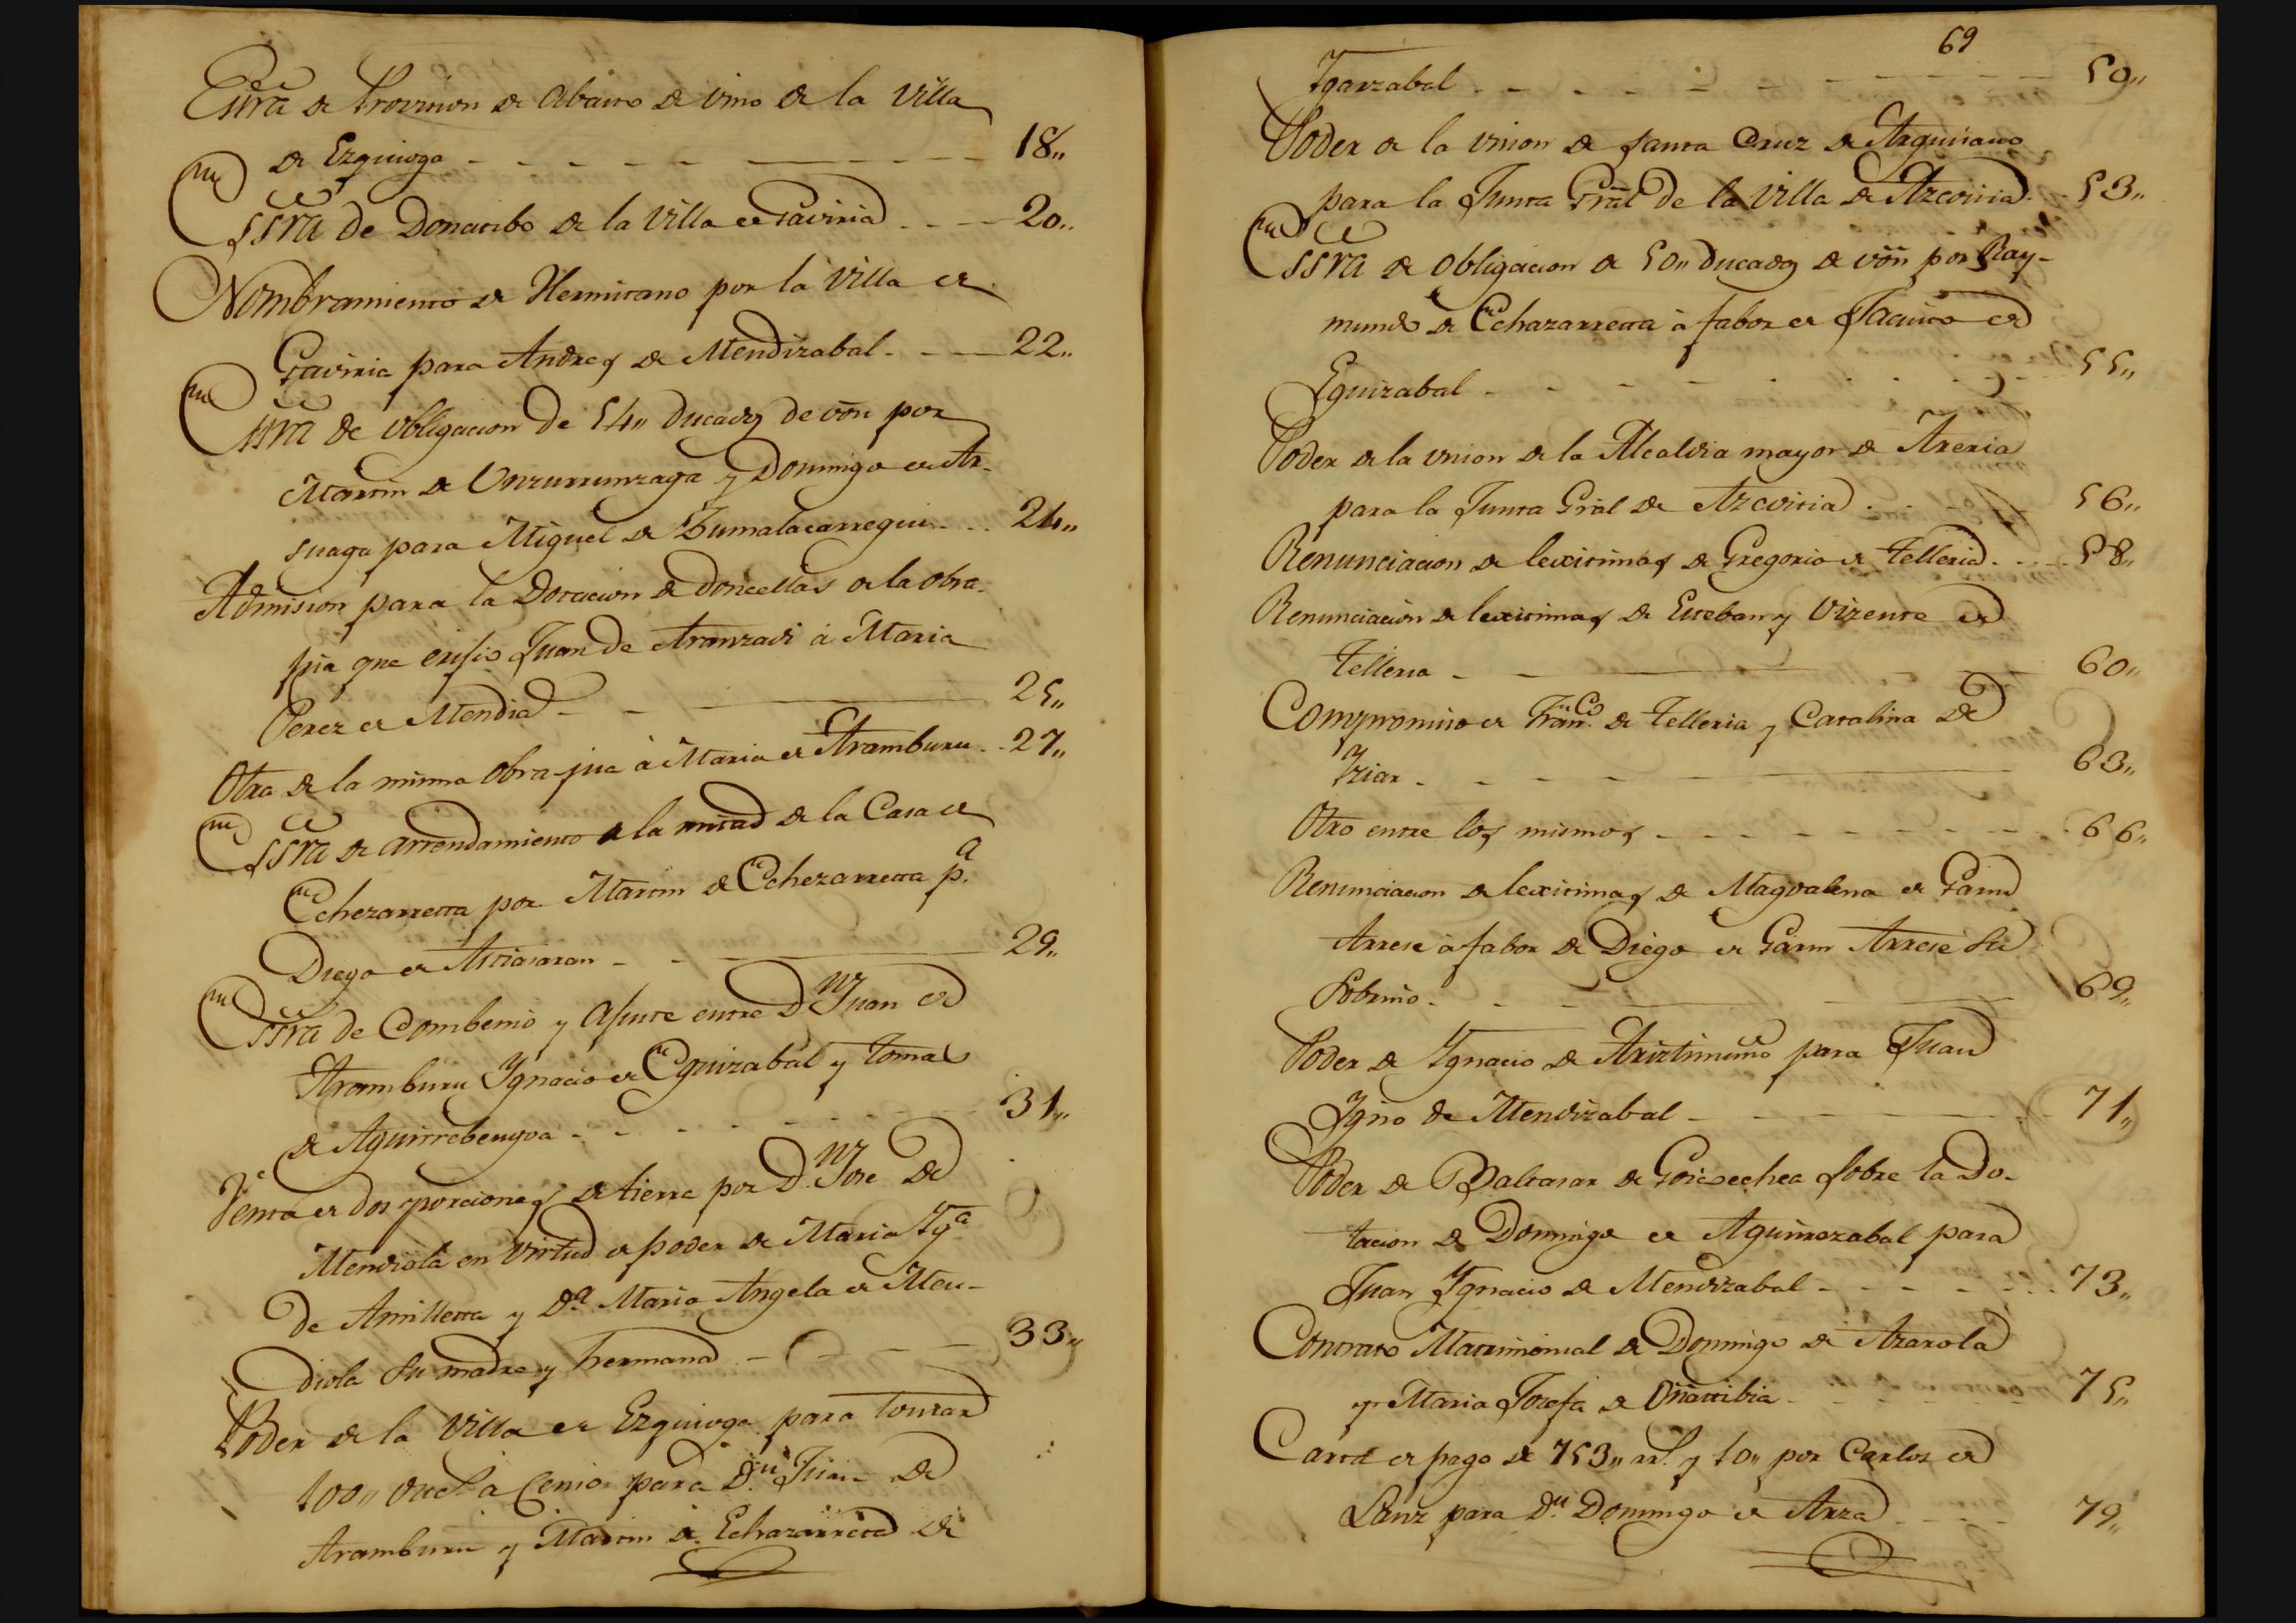 Essrâ de Provision de Abasto de vino de la Villa
de Ezquioga - - - - - 18,,
Essrâ de Donatibo de la Villa de Gaviria - - - 20,,
Nombramiento de Hermitano por la Villa de
Gaviria para Andres de Mendizabal - - - 22,,
Essrâ de obligacion de 54,, ducados de von por
Martin de Unzurrunzaga y Domingo de Ar-
suaga para Miguel de Zumalacarregui - - 24,,
Admision para la Dotacion de doncellas de la obra
pia que erisio Juan de Aranzadi â Maria
Perez de Mendia - - - 25,,
Otra de la misma obra pia â Maria de Aramburu - - 27,,
Essrâ de arrendamiento de la mitad de la Casa de
Echezarreta por Martin de Echezarreta p.a
Diego de Astiasaran - - - 29,,
Essrâ de Combenio y Ajuste entre Dn Juan de
Aramburu Ygnacio de Eguizabal y Tomas
de Aguirrebengoa - - - - - 31,,
Venta de dos porciones de tierra por Dn Jose de
Mendiola en virtud de poder de Maria Ygª
de Amilleta y Dª Maria Angela de Men-
diola su madre y hermana - - - - 33,,
Poder de la Villa de Ezquioga para tomar
100,, ducs â Censo para Dn Juan de
Aramburu y Martin de Echazarreta de
69
Ygarzabal - - - - - - 50,,
Poder de la union de Santa Cruz de Arguisano
para la Junta Gral de la Villa de Azcoitia - 53,,
Essrâ de obligacion de 50,, ducados de von por Ray-
mundo de Echazarreta â fabor de Jacinto de
Eguizabal - - - - - 55,,
Poder de la union de la Alcaldia mayor de Areria
para la Junta Gral de Azcoitia - - - 56,,
Renunciacion de lexitimas de Gregorio de Telleria - - - 58,,
Renunciacion de lexitimas de Esteban y Vizente de
Telleria - - - - 60,,
Compromiso de Franco de Telleria y Catalina de
Yziar - - - - - 63,,
Otro entre los mismos - - - - - 66,,
Renunciacion de lexitimas de Magdalena de Garin
Arrese â fabor de Diego de Garin Arrese su
Sobrino - - - - 69,,
Poder de Ygnacio de Ariztimuño para Juan
Ygno de Mendizabal - - - - - 71,,
Poder de Baltasar de Goicoechea sobre la Do-
tacion de Domingo de Aguirrezabal para
Juan Ygnacio de Mendizabal - - - - - 73,,
Contrato Matrimonial de Domingo de Azarola
y Maria Josefa de Oñatibia - - - - - 75,,
Carta de pago de 753,, rrl. y 10,, por Carlos de
Sanz para Dn Domingo de Arza - - - 79,,